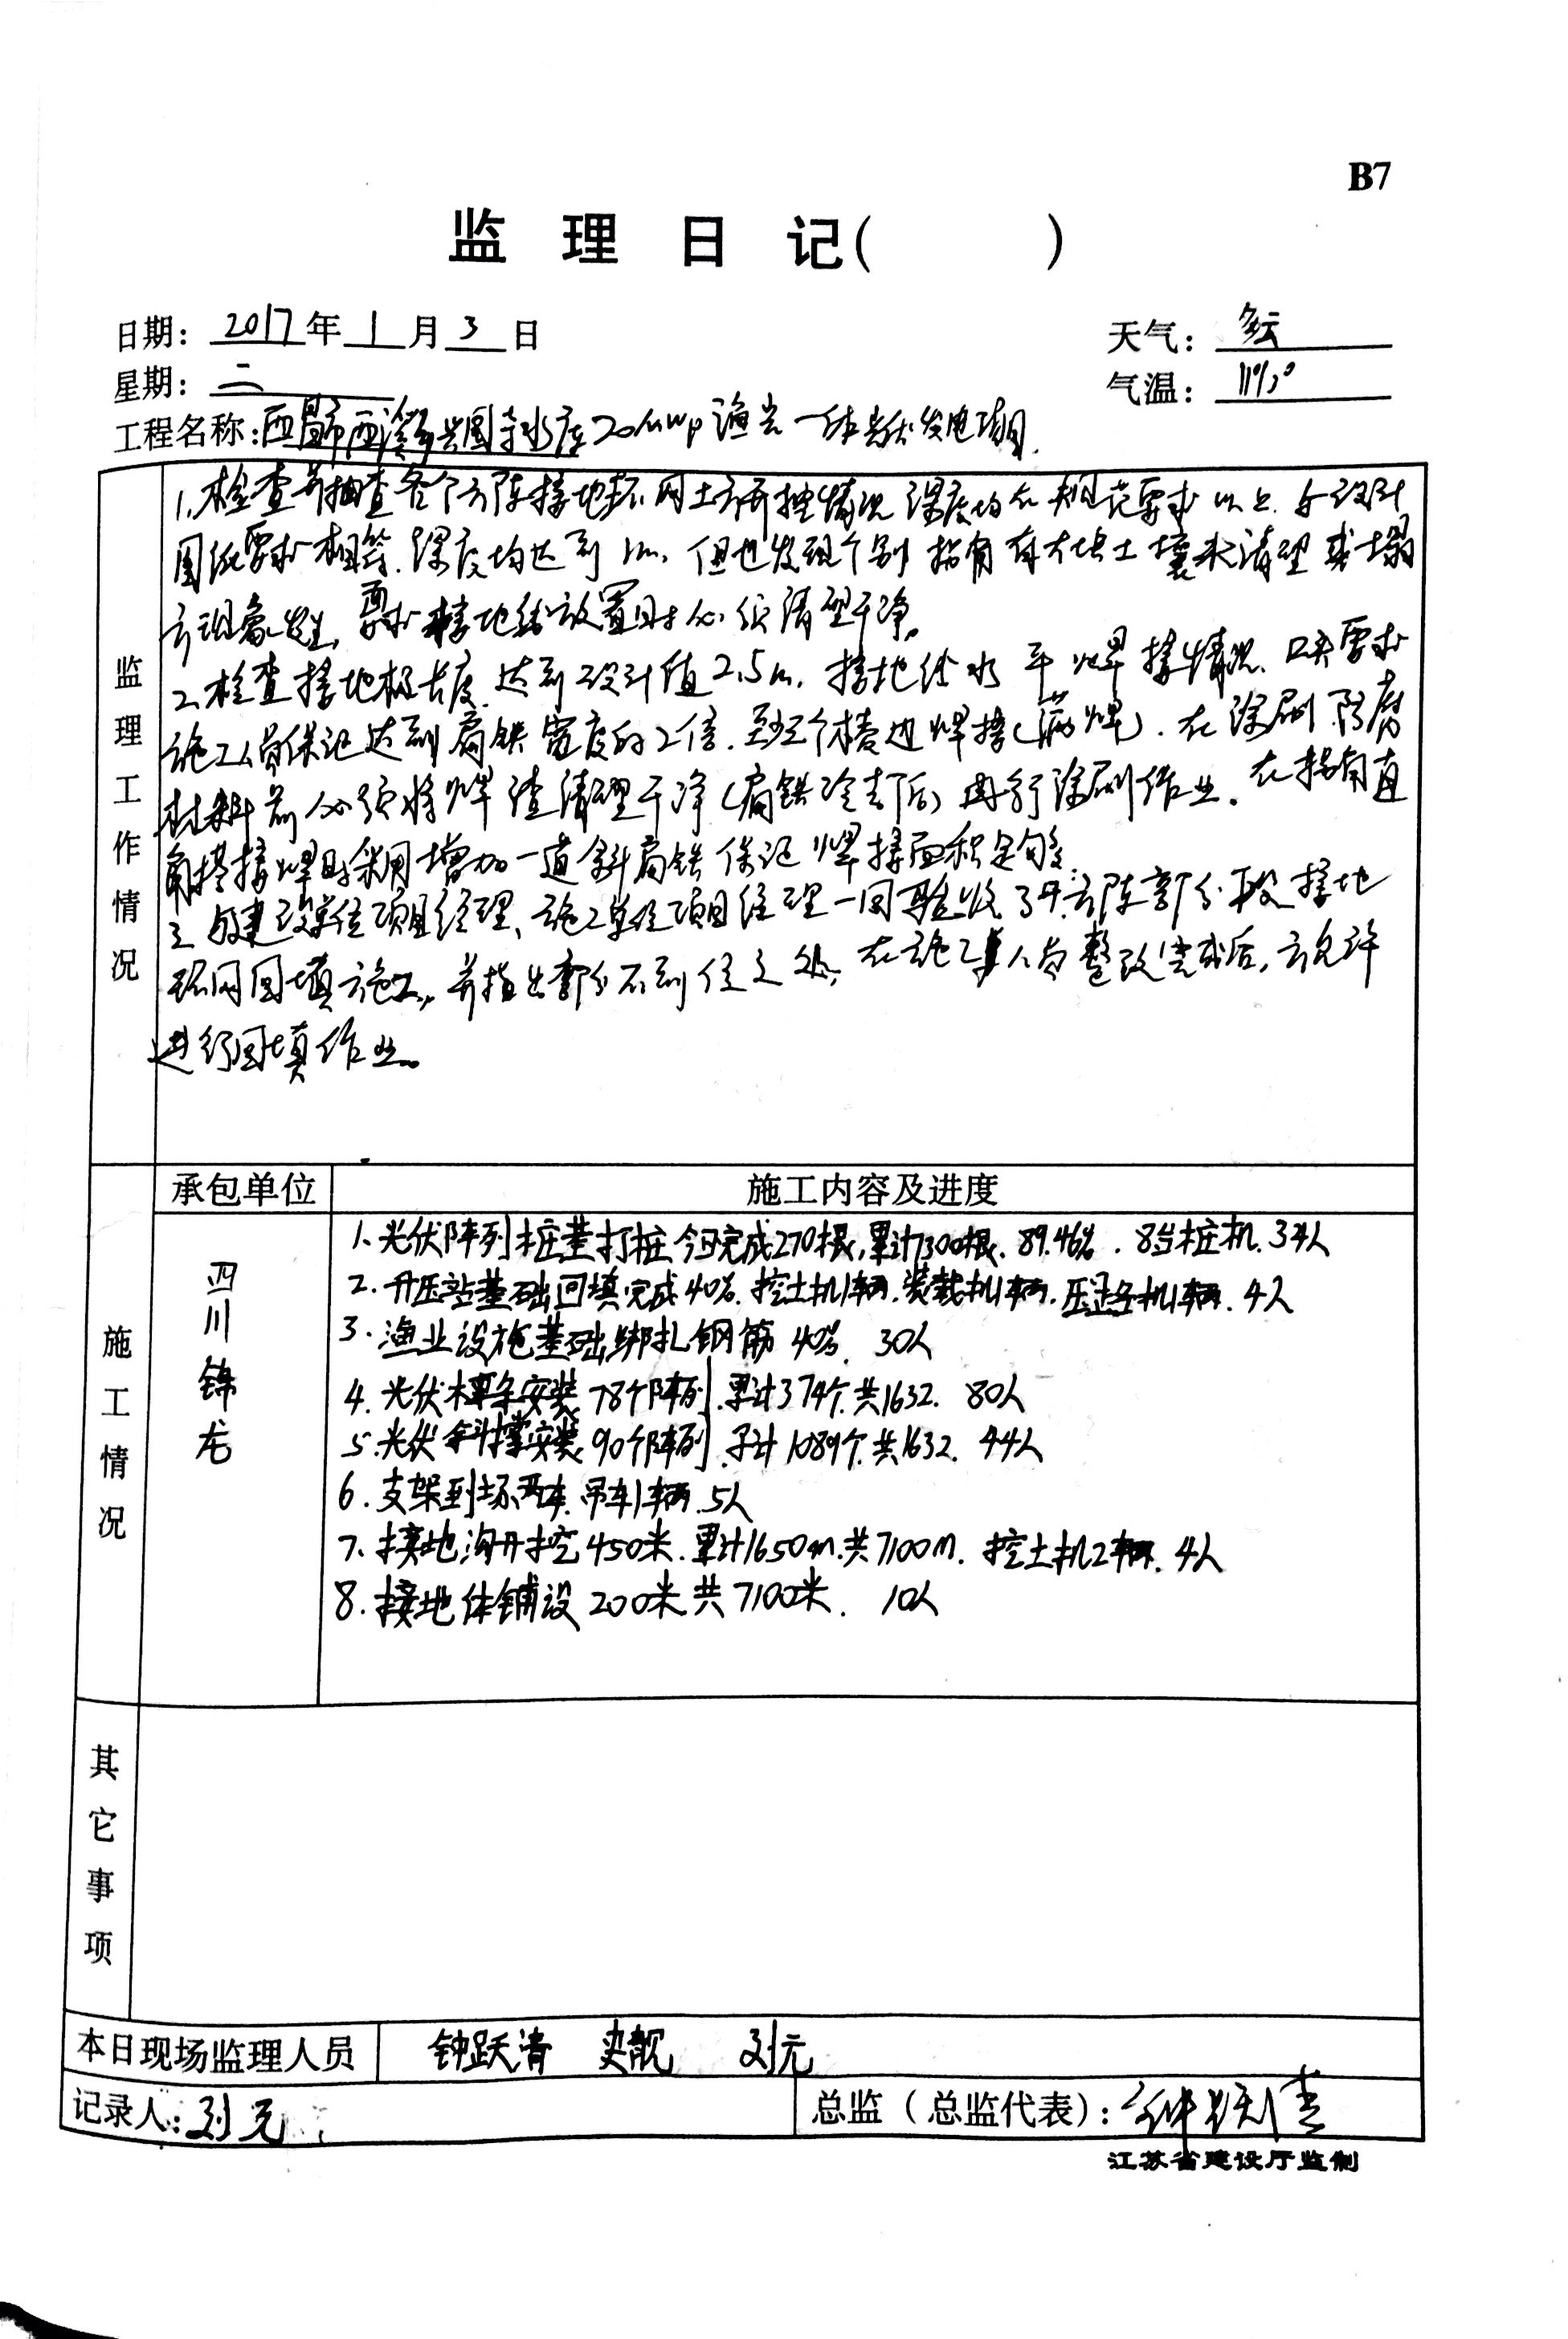 B7
监 理 日 记（ ）
日期： 2017 年 1 月 3 日
天气： 多云
星期： 二
气温：
工程名称：西昌市西溪乡兴国寺水库20MWp渔光一体光伏发电项目
监理工作情况
1、检查并抽查各个方阵接地环网土方开挖情况 深度均在规范要求以上，与设计
图纸要求相符，深度均达到1m，但也发现个别拐角有大块土壤未清理或塌
方现象发生，要求接地线放置时必须清理干净。
2、检查接地极长度，达到设计值2.5m，接地线水平焊接情况，要求
施工人员保证达到扁铁宽度的2倍，至少三个棱边焊接（满焊），在涂刷防腐
材料前必须将焊渣清理干净（扁铁冷却后）再行涂刷作业。在拐角直
角搭接焊时采用增加一道斜扁铁保证焊接面积足够；
3、与建设单位项目经理、施工单位项目经理一同验收了方阵部分段接地
环网回填施工，并指出部分不到位之处，在施工人员整改完成后，方允许
进行回填作业。
施工情况
承包单位 施工内容及进度
四川锦龙
1、光伏阵列桩基打桩今日完成270根，累计7300根，89.46%．8台桩机．34人
2．升压站基础回填完成40%．挖土机1辆．装载机1辆．压路机1辆．4人
3．渔业设施基础绑扎钢筋40%．30人
4．光伏檩条安装78个阵列．累计374个．共1632．80人
5．光伏斜撑安装90个阵列．累计1089个．共1632．44人
6．支架到场两车．吊车1辆．5人
7．接地沟开挖450米．累计1650m．共7100m．挖土机2辆．4人
8．接地体铺设200米共7100米．10人
其它事项
本日现场监理人员 钟跃清 史靓 刘元
记录人：刘元 总监（总监代表）：钟跃清
江苏省建设厅监制